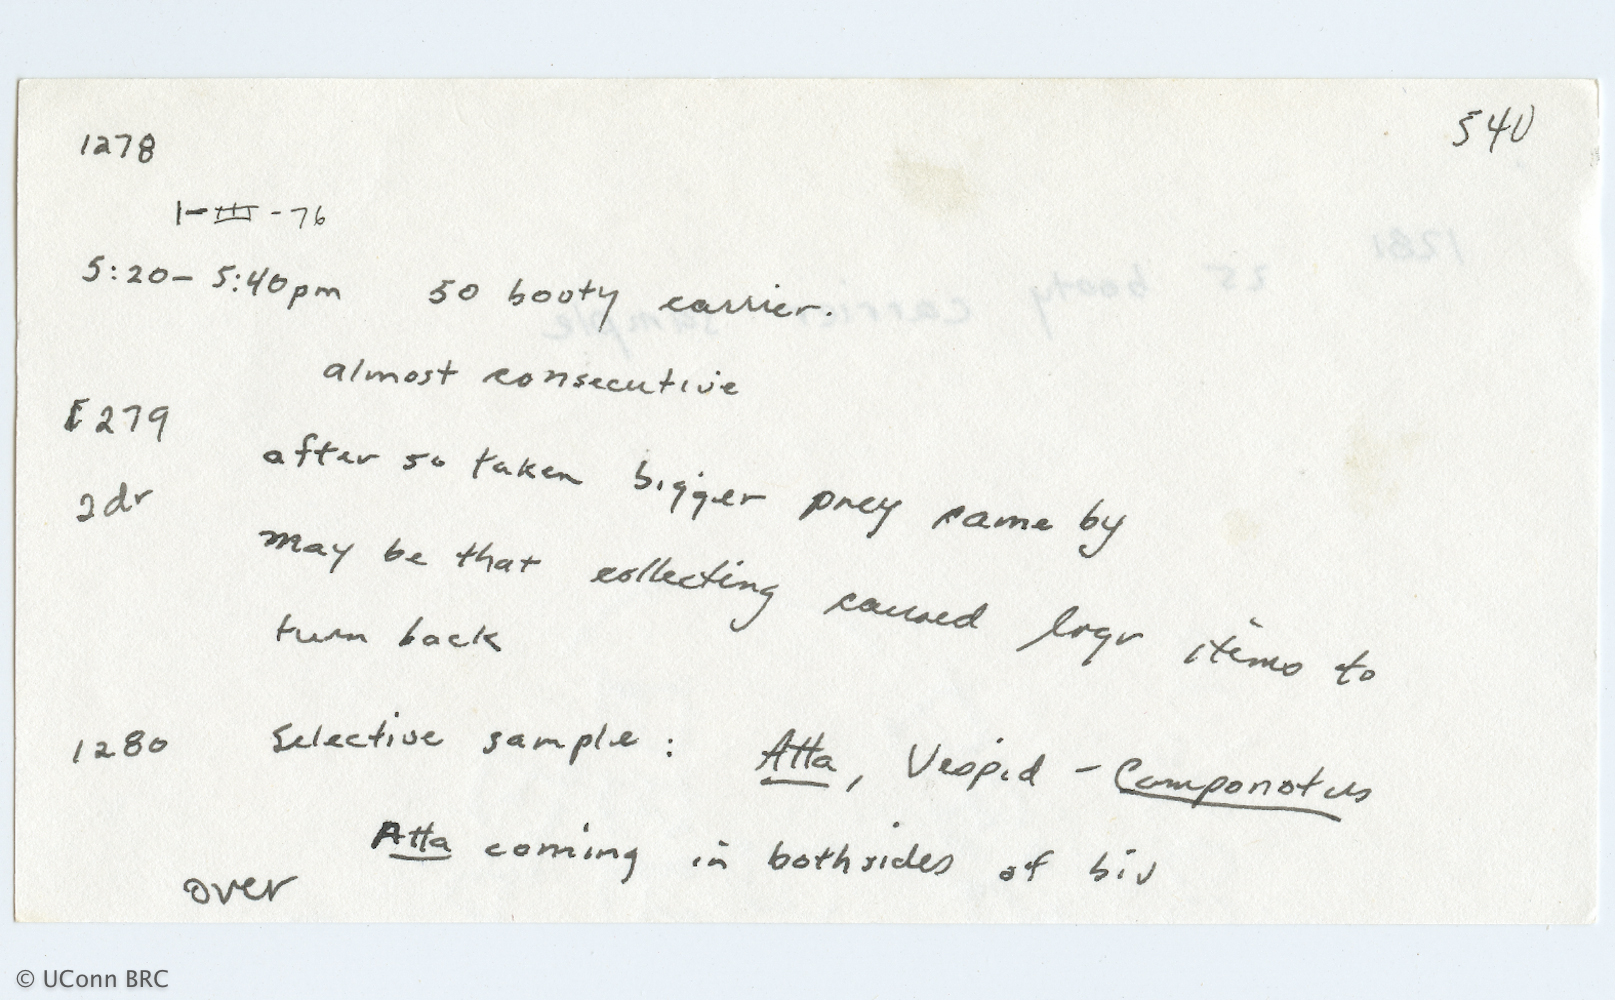 1278
540
1-III-76
5:20- 5:40pm 50 booty carrier.
almost consecutive
1279
after 50 taken bigger prey came by
2dr
may be that collecting caused lrgr items to
turn back
1280 Selective sample: Atta, Vespid - Camponotus
Atta coming in both sides of biv
over
1281
25 booty carrier sample
© UConn BRC